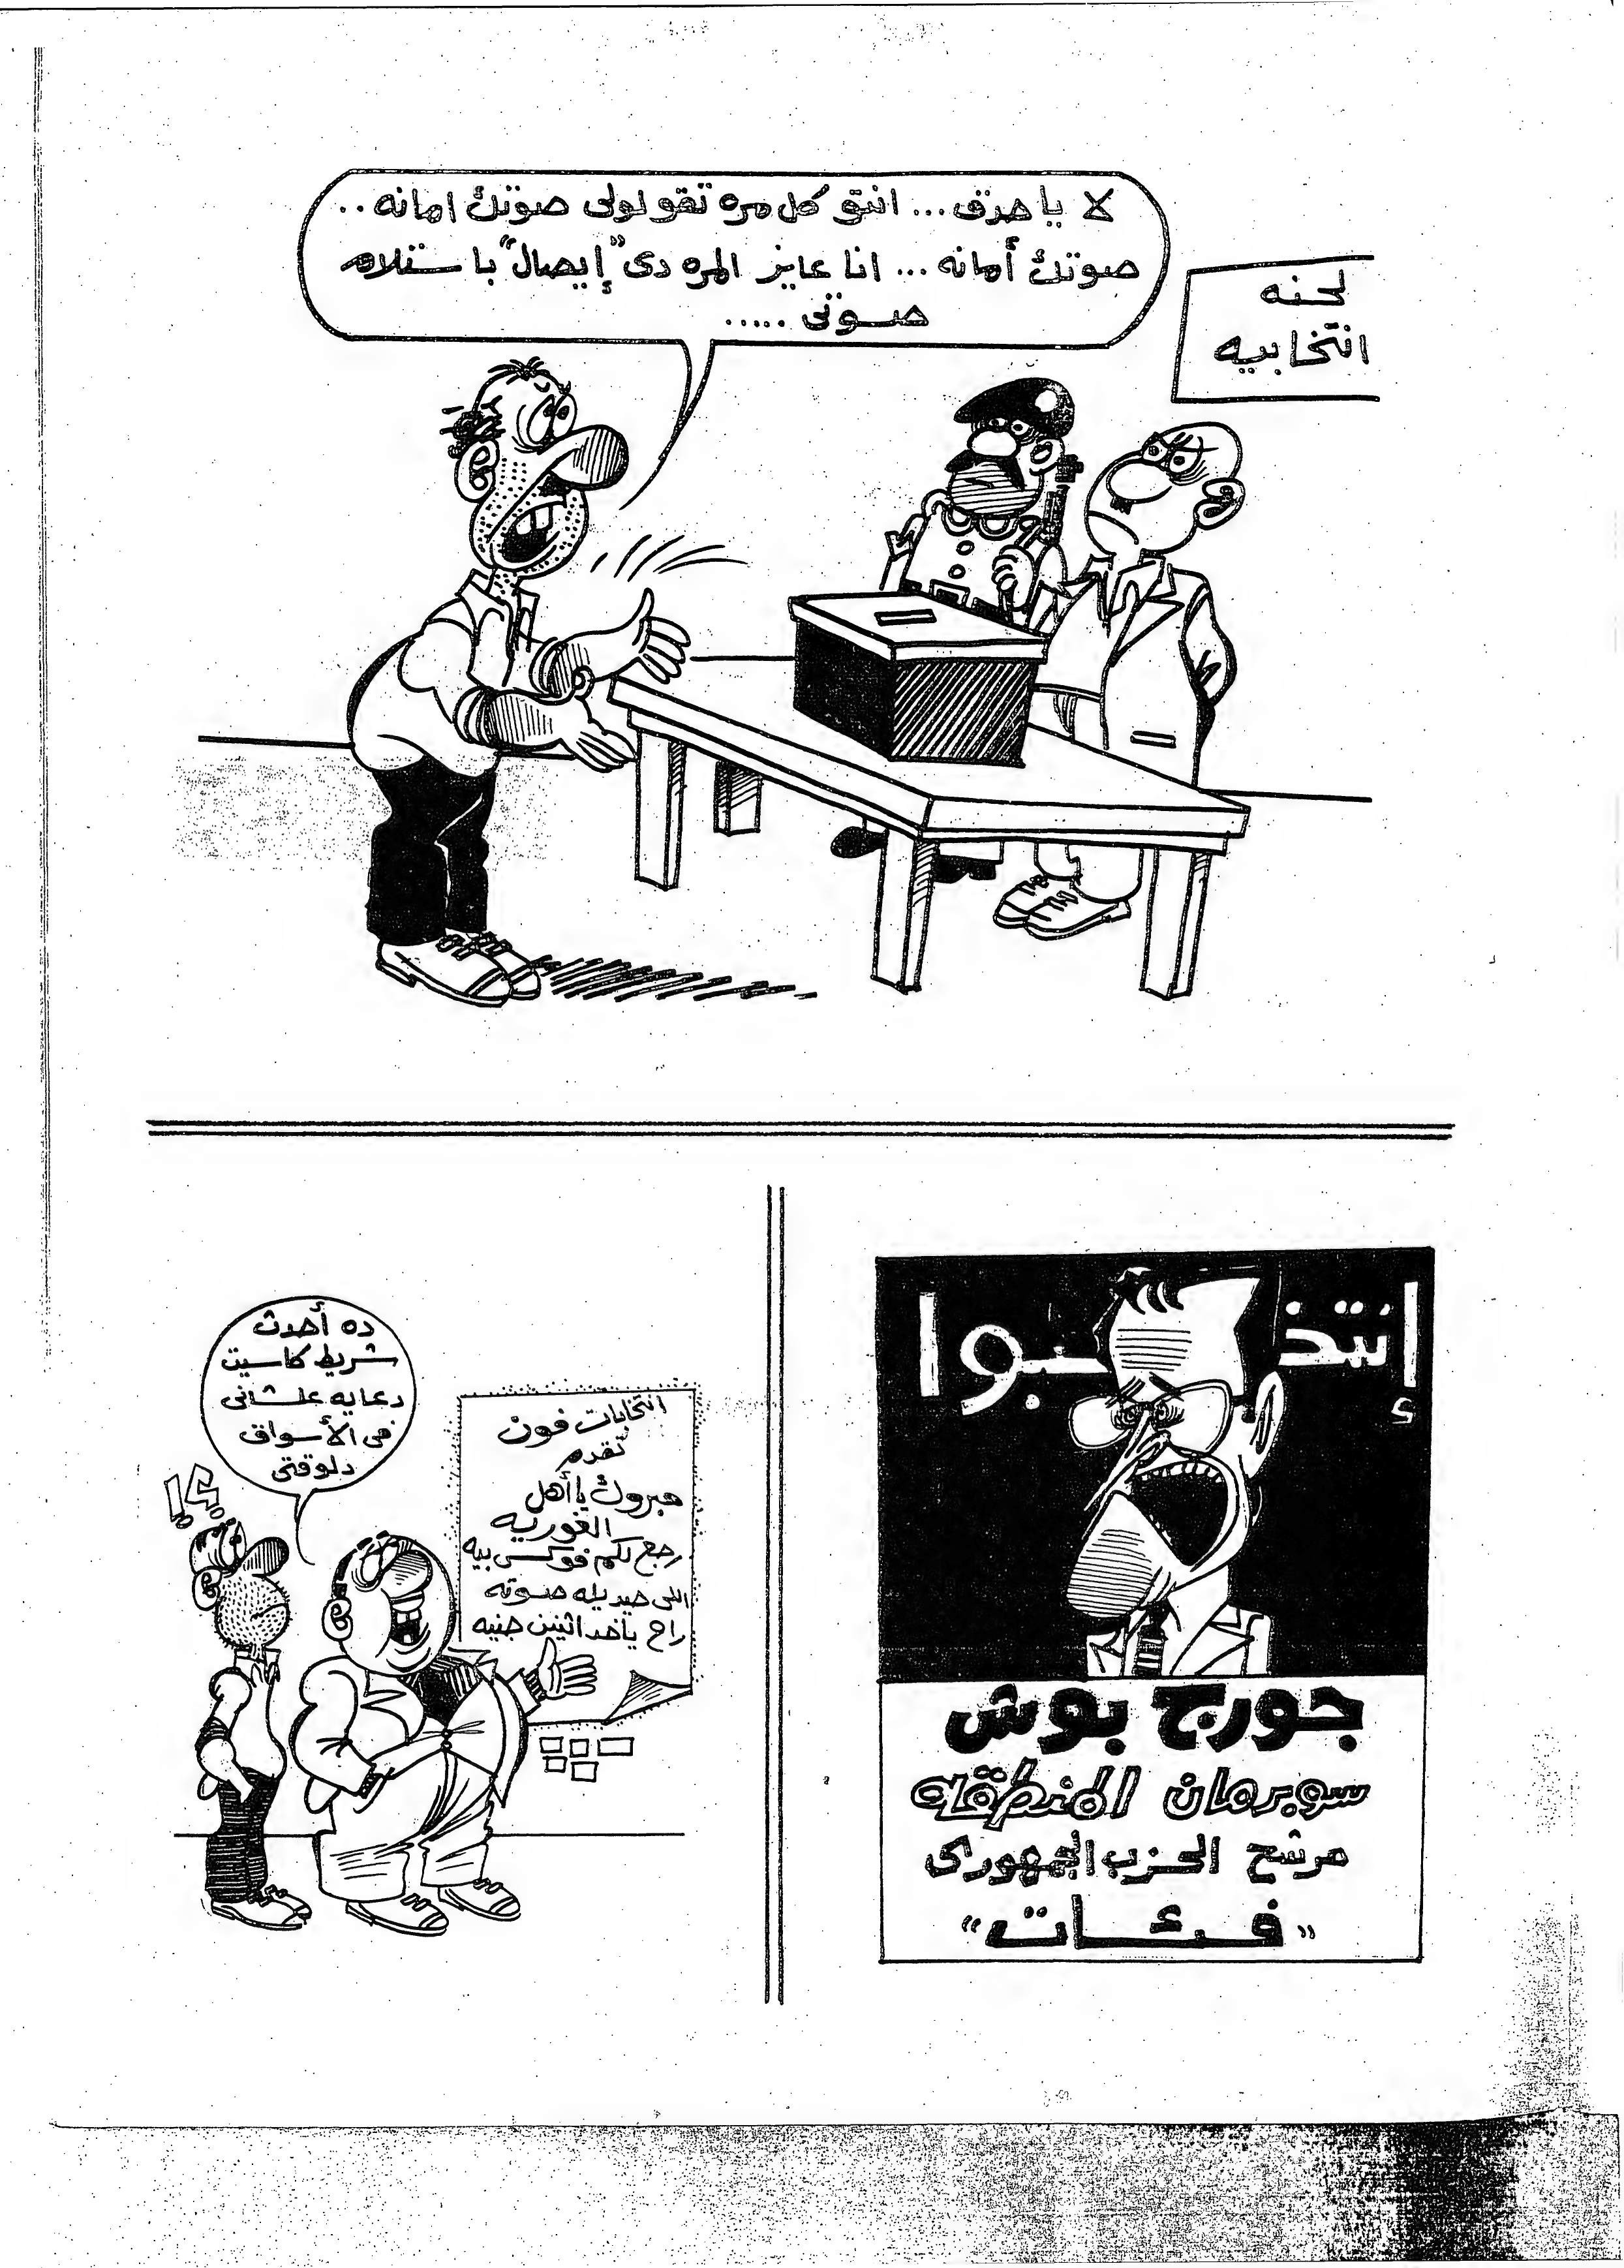 لا ياحدق... انتو كل مره تقولولى صوتك امانه..
صوتك أمانه... انا عايز المره دى "إيصال" باستلام
صوتى .....
لجنه
انتخابيه
ده أحدث
شريط كاسيت
دعايه علشانى
فى الأسواق
دلوقتى
!؟
انتخابات فون
تقدم
مبروك يا أهل
الغوريه
رجع لكم فوكس بيه
اللى حيديله صوته
راح ياخد اتنين جنيه
إنتخبوا
جورج بوش
سوبرمان المنطقه
مرشح الحزب الجمهورى
"فئات"